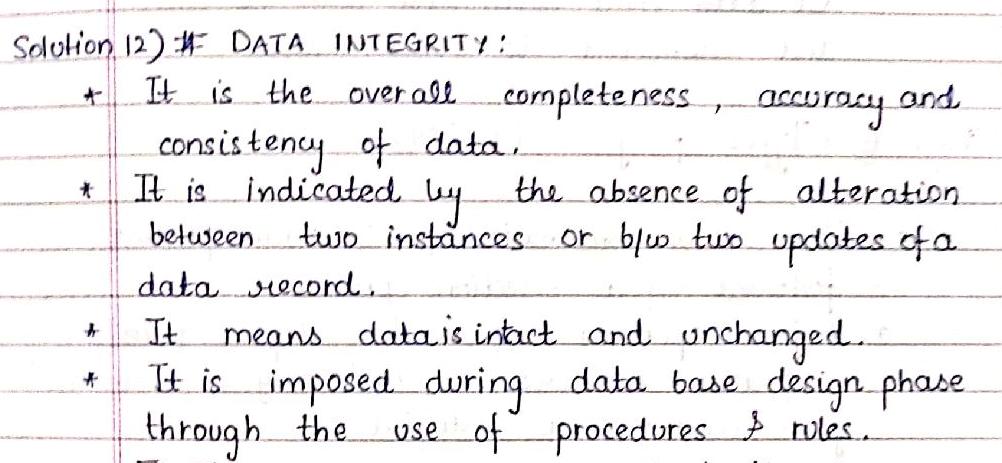 Solution 12) # DATA INTEGRITY:
* It is the overall completeness, accuracy and
consistency of data.
* It is indicated by the absence of alteration
between two instances or b/w two updates of a
data record.
* It means data is intact and unchanged.
* It is imposed during data base design phase
through the use of procedures & rules.